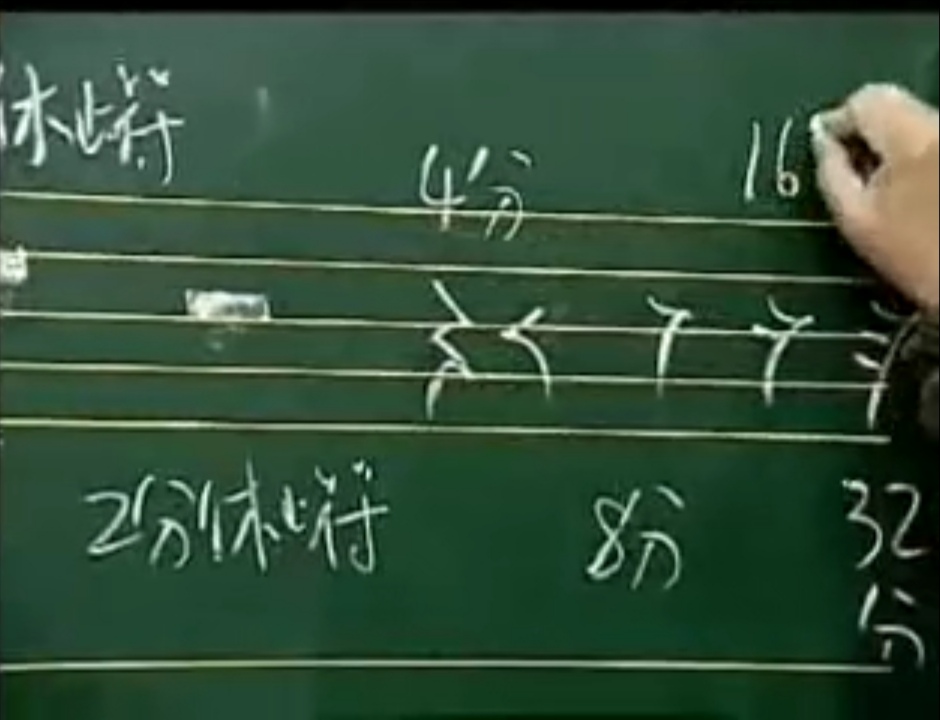 休止符
4分
16
2分休止符
8分
32
分